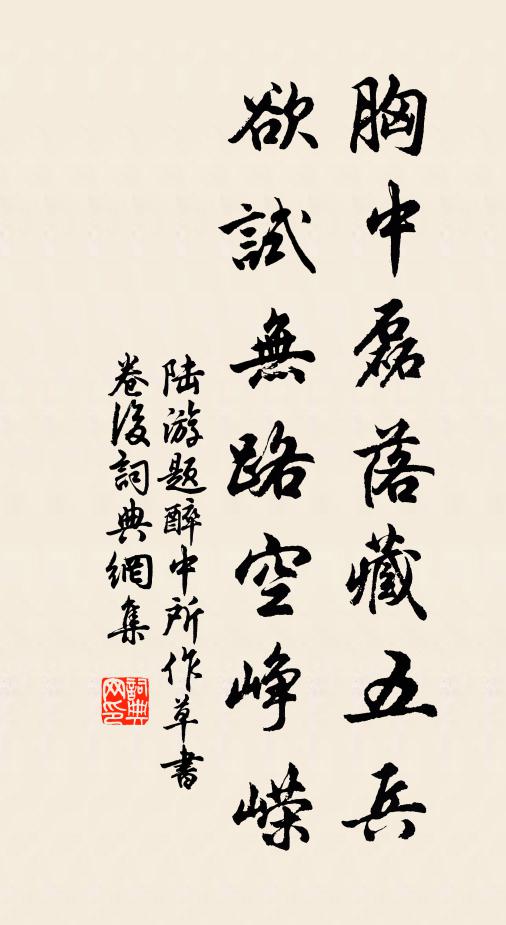 胸中磊落藏五兵
欲試無路空崢嶸
陆游题醉中所作草書
卷後詞典網集
詞典网印